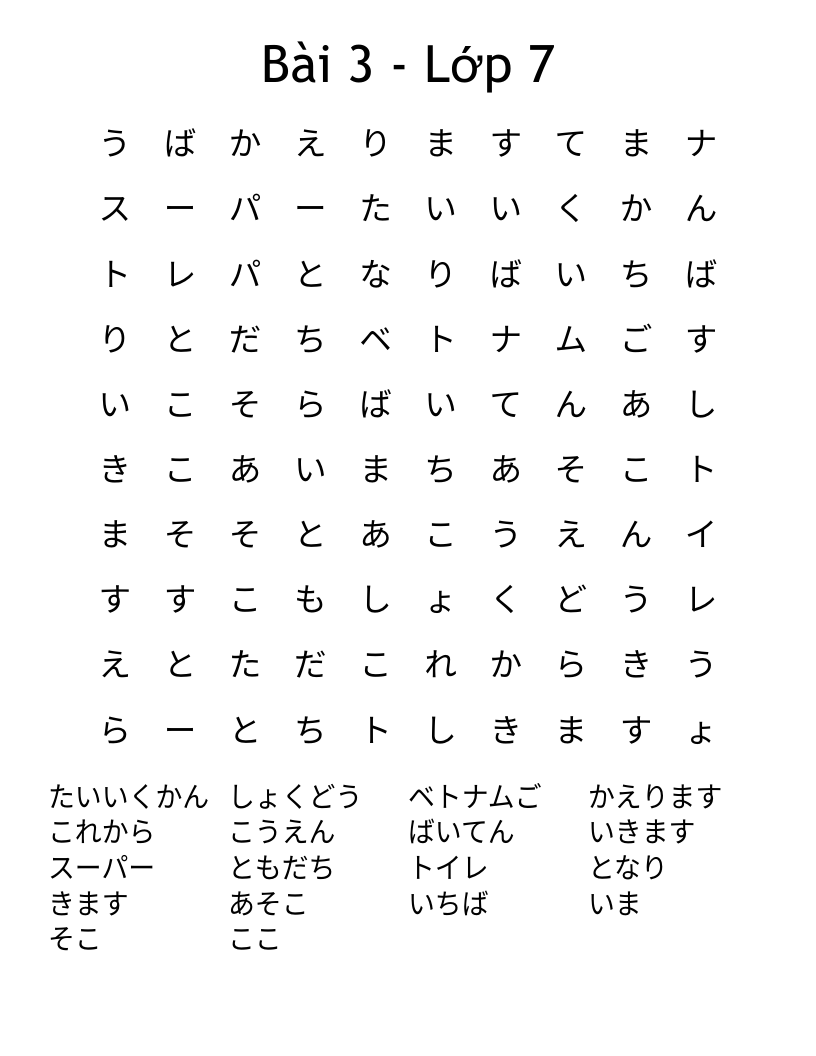 Bài 3 - Lớp 7
う ば か え り ま す て ま ナ
ス ー パ ー た い い く か ん
ト レ パ と な り ば い ち ば
り と だ ち ベ ト ナ ム ご す
い こ そ ら ば い て ん あ し
き こ あ い ま ち あ そ こ ト
ま そ そ と あ こ う え ん イ
す す こ も し ょ く ど う レ
え と た だ こ れ か ら き う
ら ー と ち ト し き ま す ょ
たいいくかん しょくどう ベトナムご かえります
これから こうえん ばいてん いきます
スーパー ともだち トイレ となり
きます あそこ いちば いま
そこ ここ